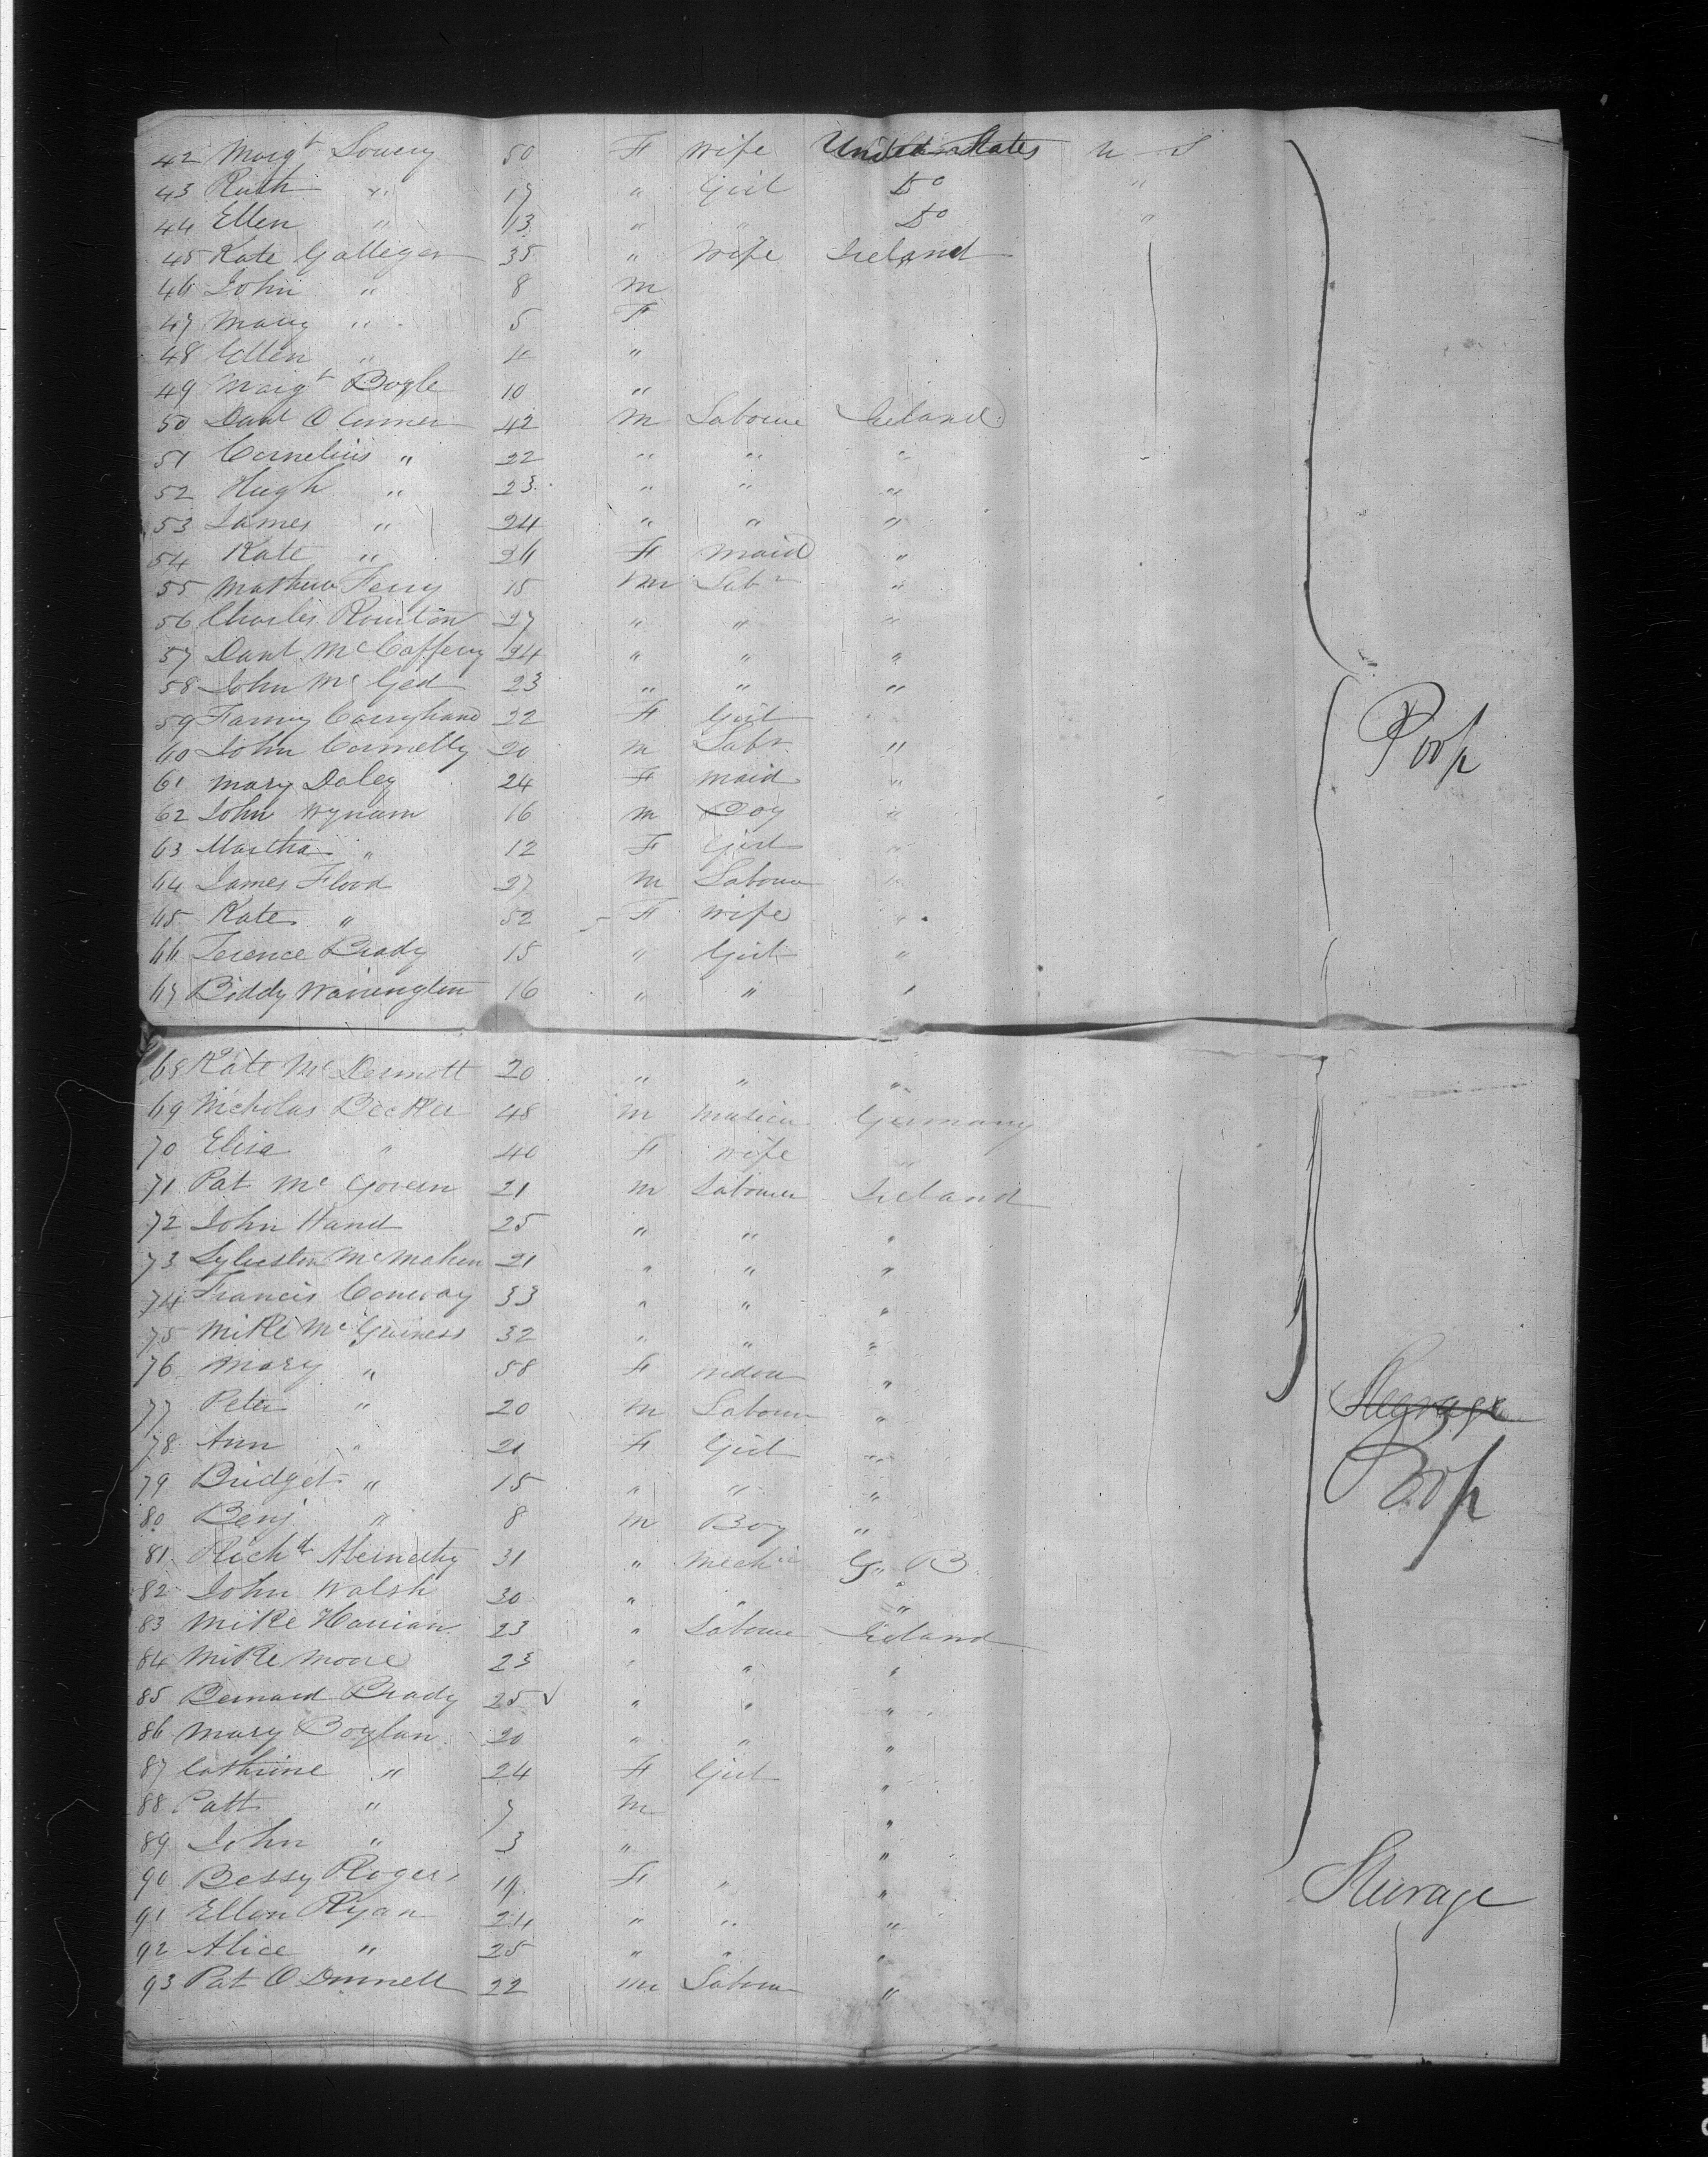 42 Margt Lowery 50 F Wife United States U S
43 Ruth " 17 " Girl Do "
44 Ellen " 13 " " Do "
45 Kate Gallegar 35 " Wife Ireland
46 John " 8 M
47 Mary " 5 F
48 Ellen " 4 "
49 Margt Bogle 10 "
50 Danl O Conner 42 M Laboure Ireland
51 Cornelius " 22 " " "
52 Hugh " 23 " " "
53 James " 24 " " "
54 Kate " 26 F Maid "
55 Mathew Ferry 15 M Labr "
56 Charles 27 " " "
57 Danl McCaffery 24 " " "
58 John McGed 23 " " "
59 Fanny 22 F Girl
60 John Connelly 20 M Labr "
61 Mary Daley 24 F Maid "
62 John Wynam 16 M Boy "
63 Martha " 12 F Girl "
64 James Flood 27 M Labour "
65 Kate " 52 F Wife "
66 Terence Brady 15 " Girl "
67 Biddy Warrington 16 " " "
Poop
68 Kate McDermott 20 " " "
69 Nicholas Becker 48 M Germany
70 Elisa " 40 F Wife "
71 Pat McGovern 21 M Labourer Ireland
72 John Hand 25 " " "
73 Sylvester McMahon 21 " " "
74 Francis Conway 33 " " "
75 Mike McGuiness 32 " " "
76 Mary " 58 F Widow "
77 Peter " 20 M Labour "
78 Ann " 21 F Girl "
79 Bridget " 15 " " "
80 Benj " 8 M Boy "
Steerage
Poop
81 Richd Abernethy 31 " Mechc G. B.
82 John Walsh 30 " " "
83 Mike Harrian 23 " Laboure Ireland
84 Mike Moore 23 " " "
85 Bernard Brady 25 " " "
86 Mary Boylan 20 " " "
87 Cathrine " 24 F Girl "
88 Patt " 7 M "
89 John " 3 " "
90 Bessy Rogers 19 F " "
Steerage
91 Ellen Ryan 24 " " "
92 Alice " 25 " " "
93 Pat O Donnell 22 M Labour "